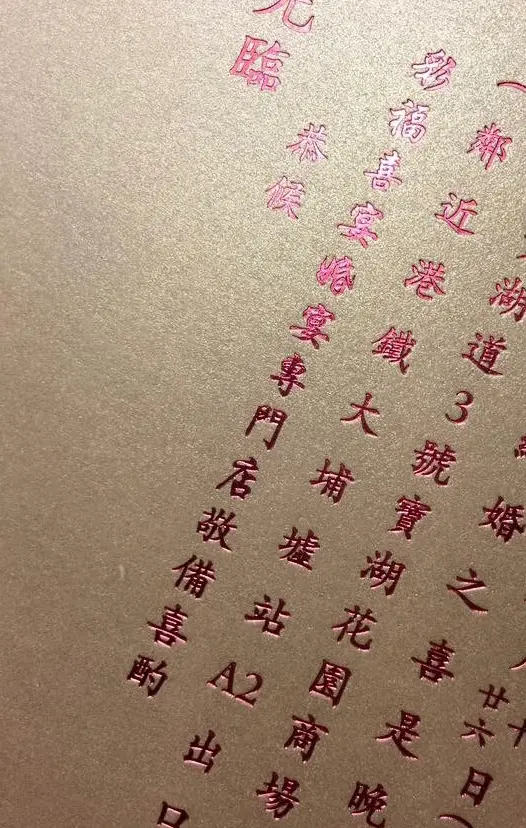 廿六日(
婚之喜是晚
湖道3號寶湖花園商場
(鄰近港鐵大埔墟站A2出口
彩福喜宴婚宴專門店敬備喜酌
恭候
光臨